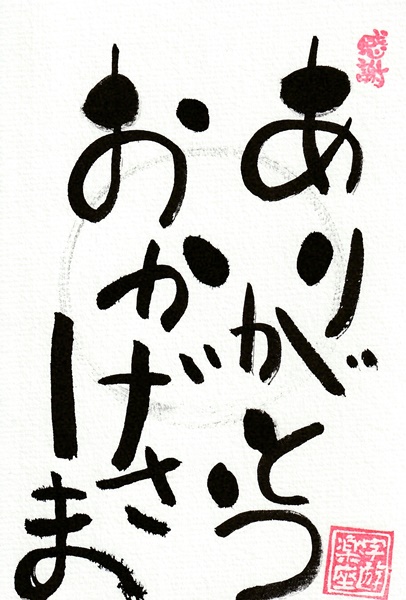 ありがとう
おかげさま
感謝
字遊
楽座